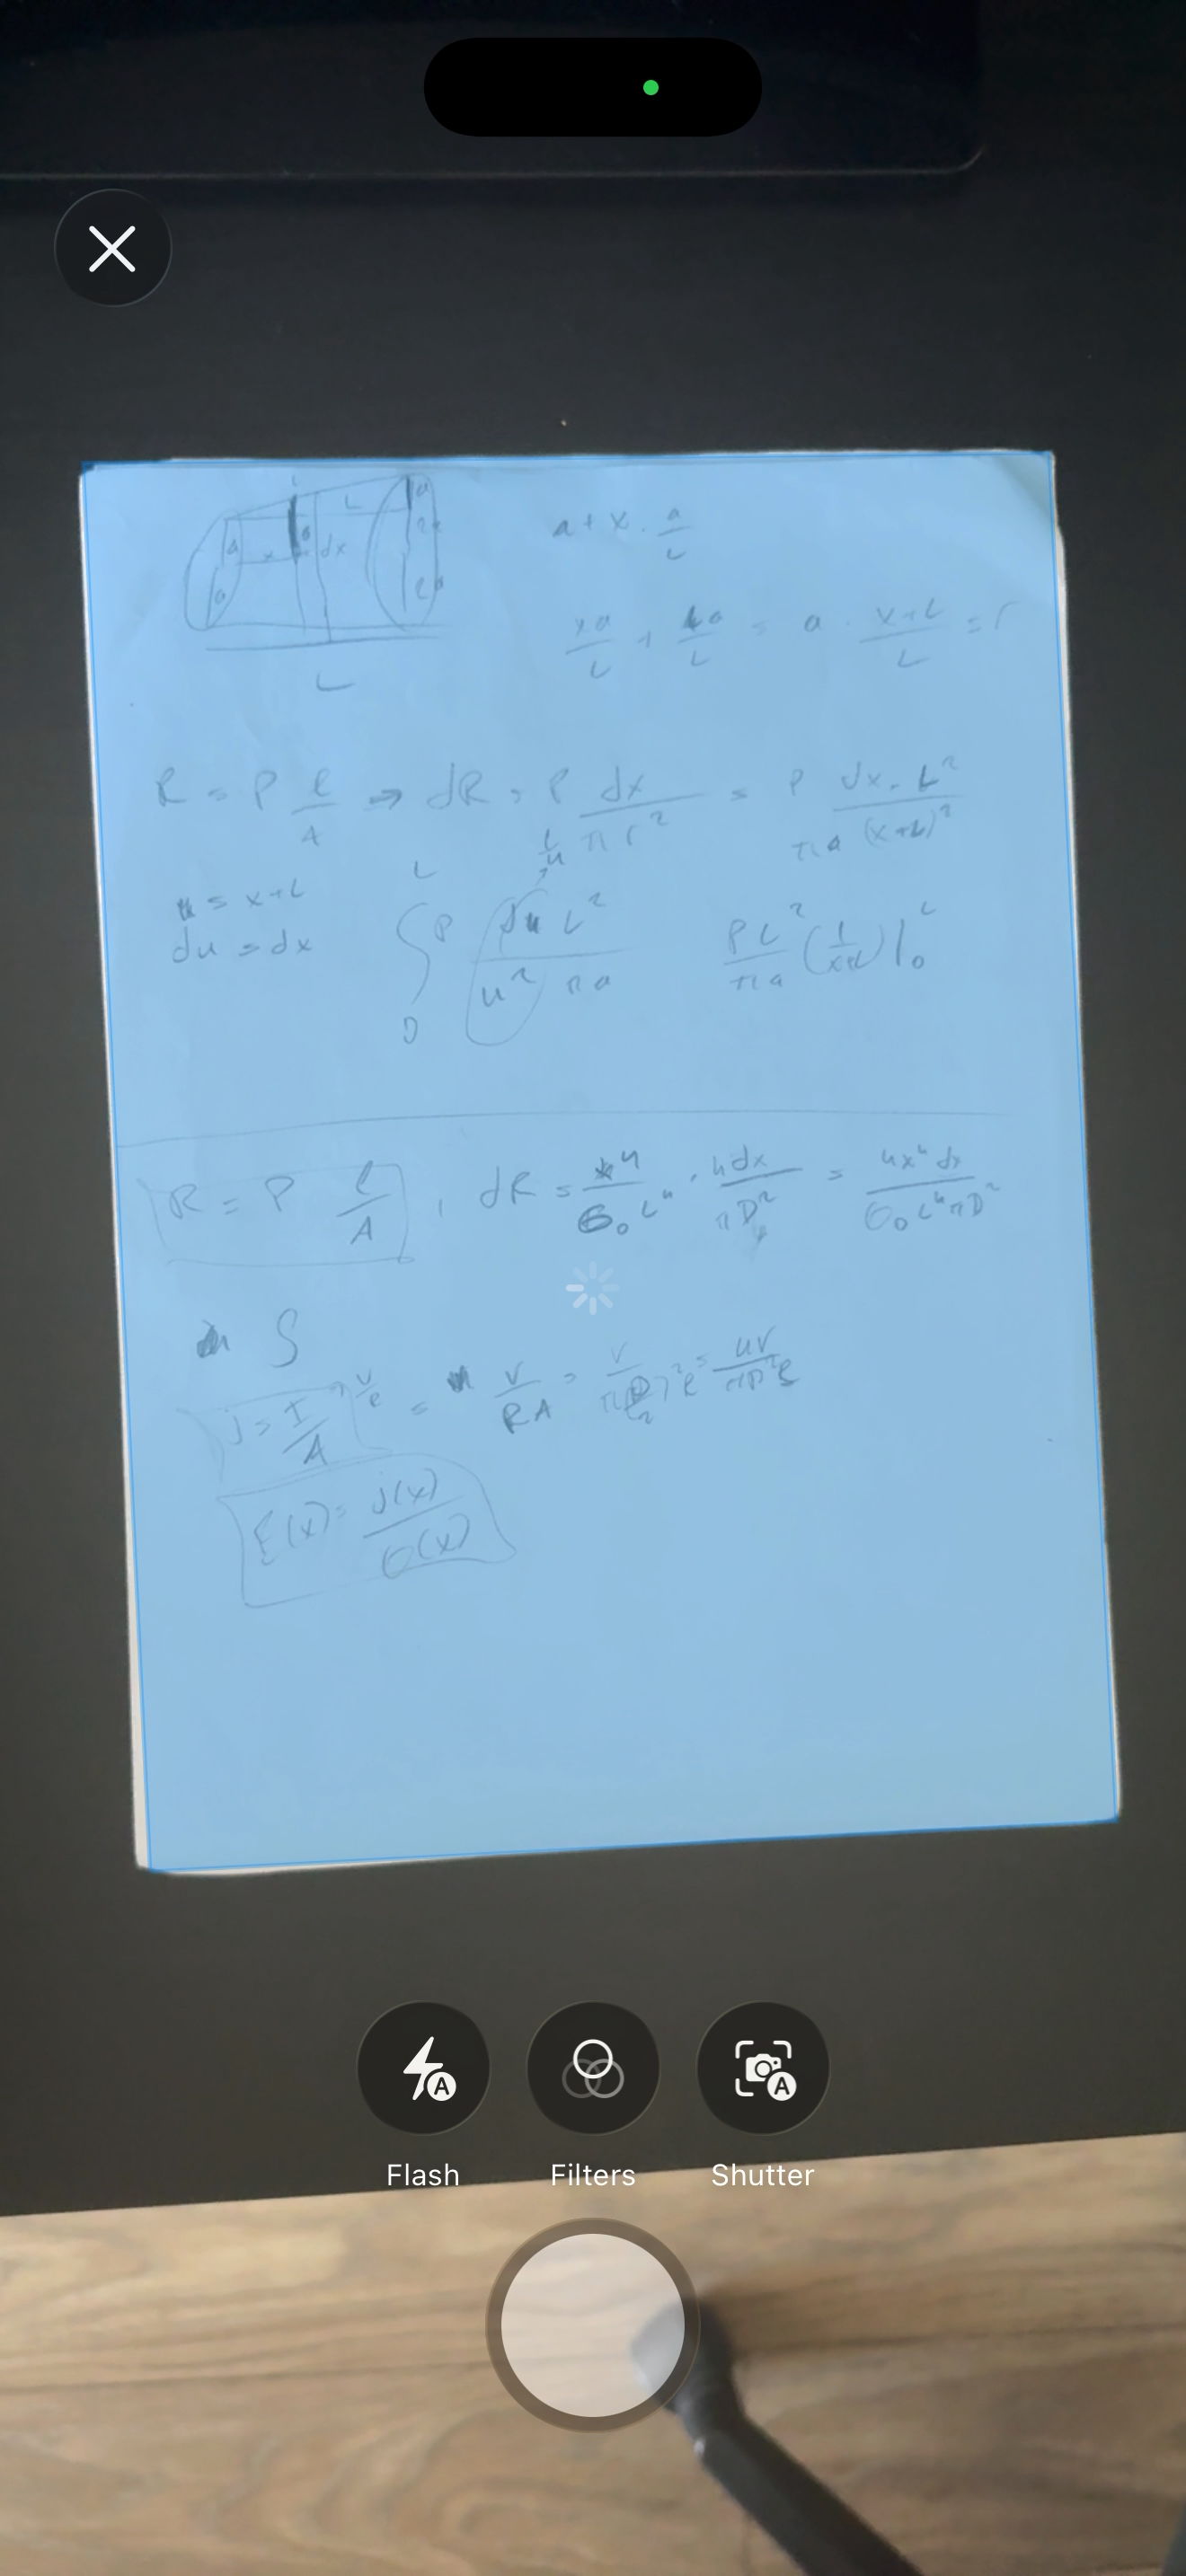 a + x · a/L
xa/L + La/L = a · x+L/L = r
L
R = ρ l/A → dR = ρ dx/πr² = ρ dx · L²/πa (x+L)²
u = x+L
du = dx
∫ ρ du L²/u² πa
ρL²/πa (1/x+L)|₀ᴸ
R = ρ l/A , dR = x⁴/σ₀L⁴ · 4dx/πD² = 4x⁴dx/σ₀L⁴πD²
S
j = I/A = V/RA = = 4V/πD²R
E(x) = j(x)/σ(x)
Flash
Filters
Shutter